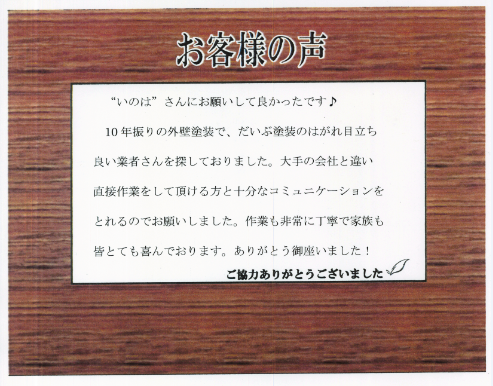 お客様の声
“いのは”さんにお願いして良かったです♪
10年振りの外壁塗装で、だいぶ塗装のはがれ目立ち
良い業者さんを探しておりました。大手の会社と違い
直接作業をして頂ける方と十分なコミュニケーションを
とれるのでお願いしました。作業も非常に丁寧で家族も
皆とても喜んでおります。ありがとう御座いました！
ご協力ありがとうございました